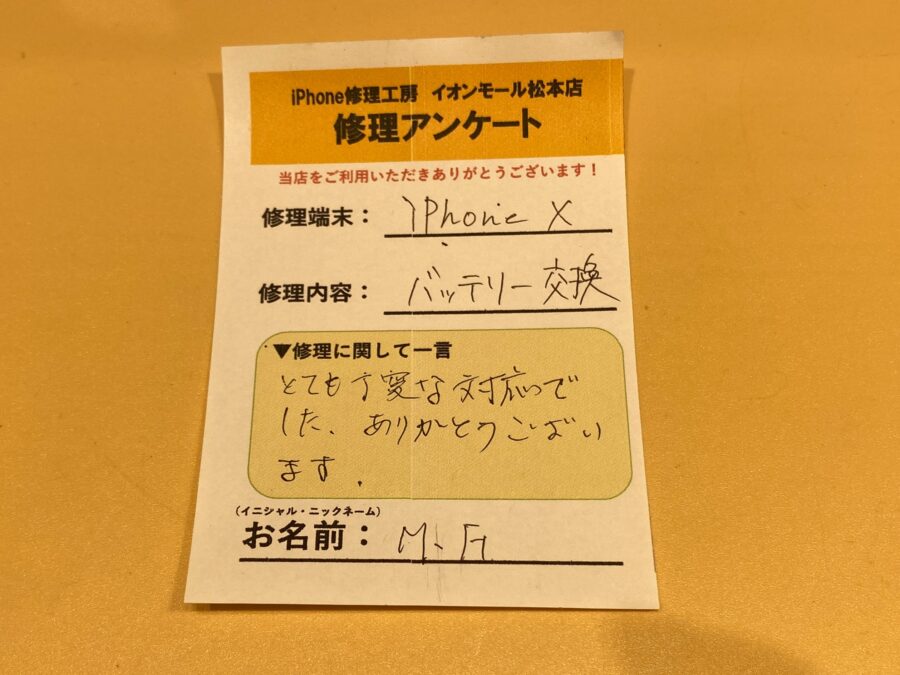 iPhone修理工房 イオンモール松本店
修理アンケート
当店をご利用いただきありがとうございます！
修理端末： iPhone X
修理内容： バッテリー交換
▼修理に関して一言
とても丁寧な対応で
した、ありがとうございい
ます.
（イニシャル・ニックネーム）
お名前： M.